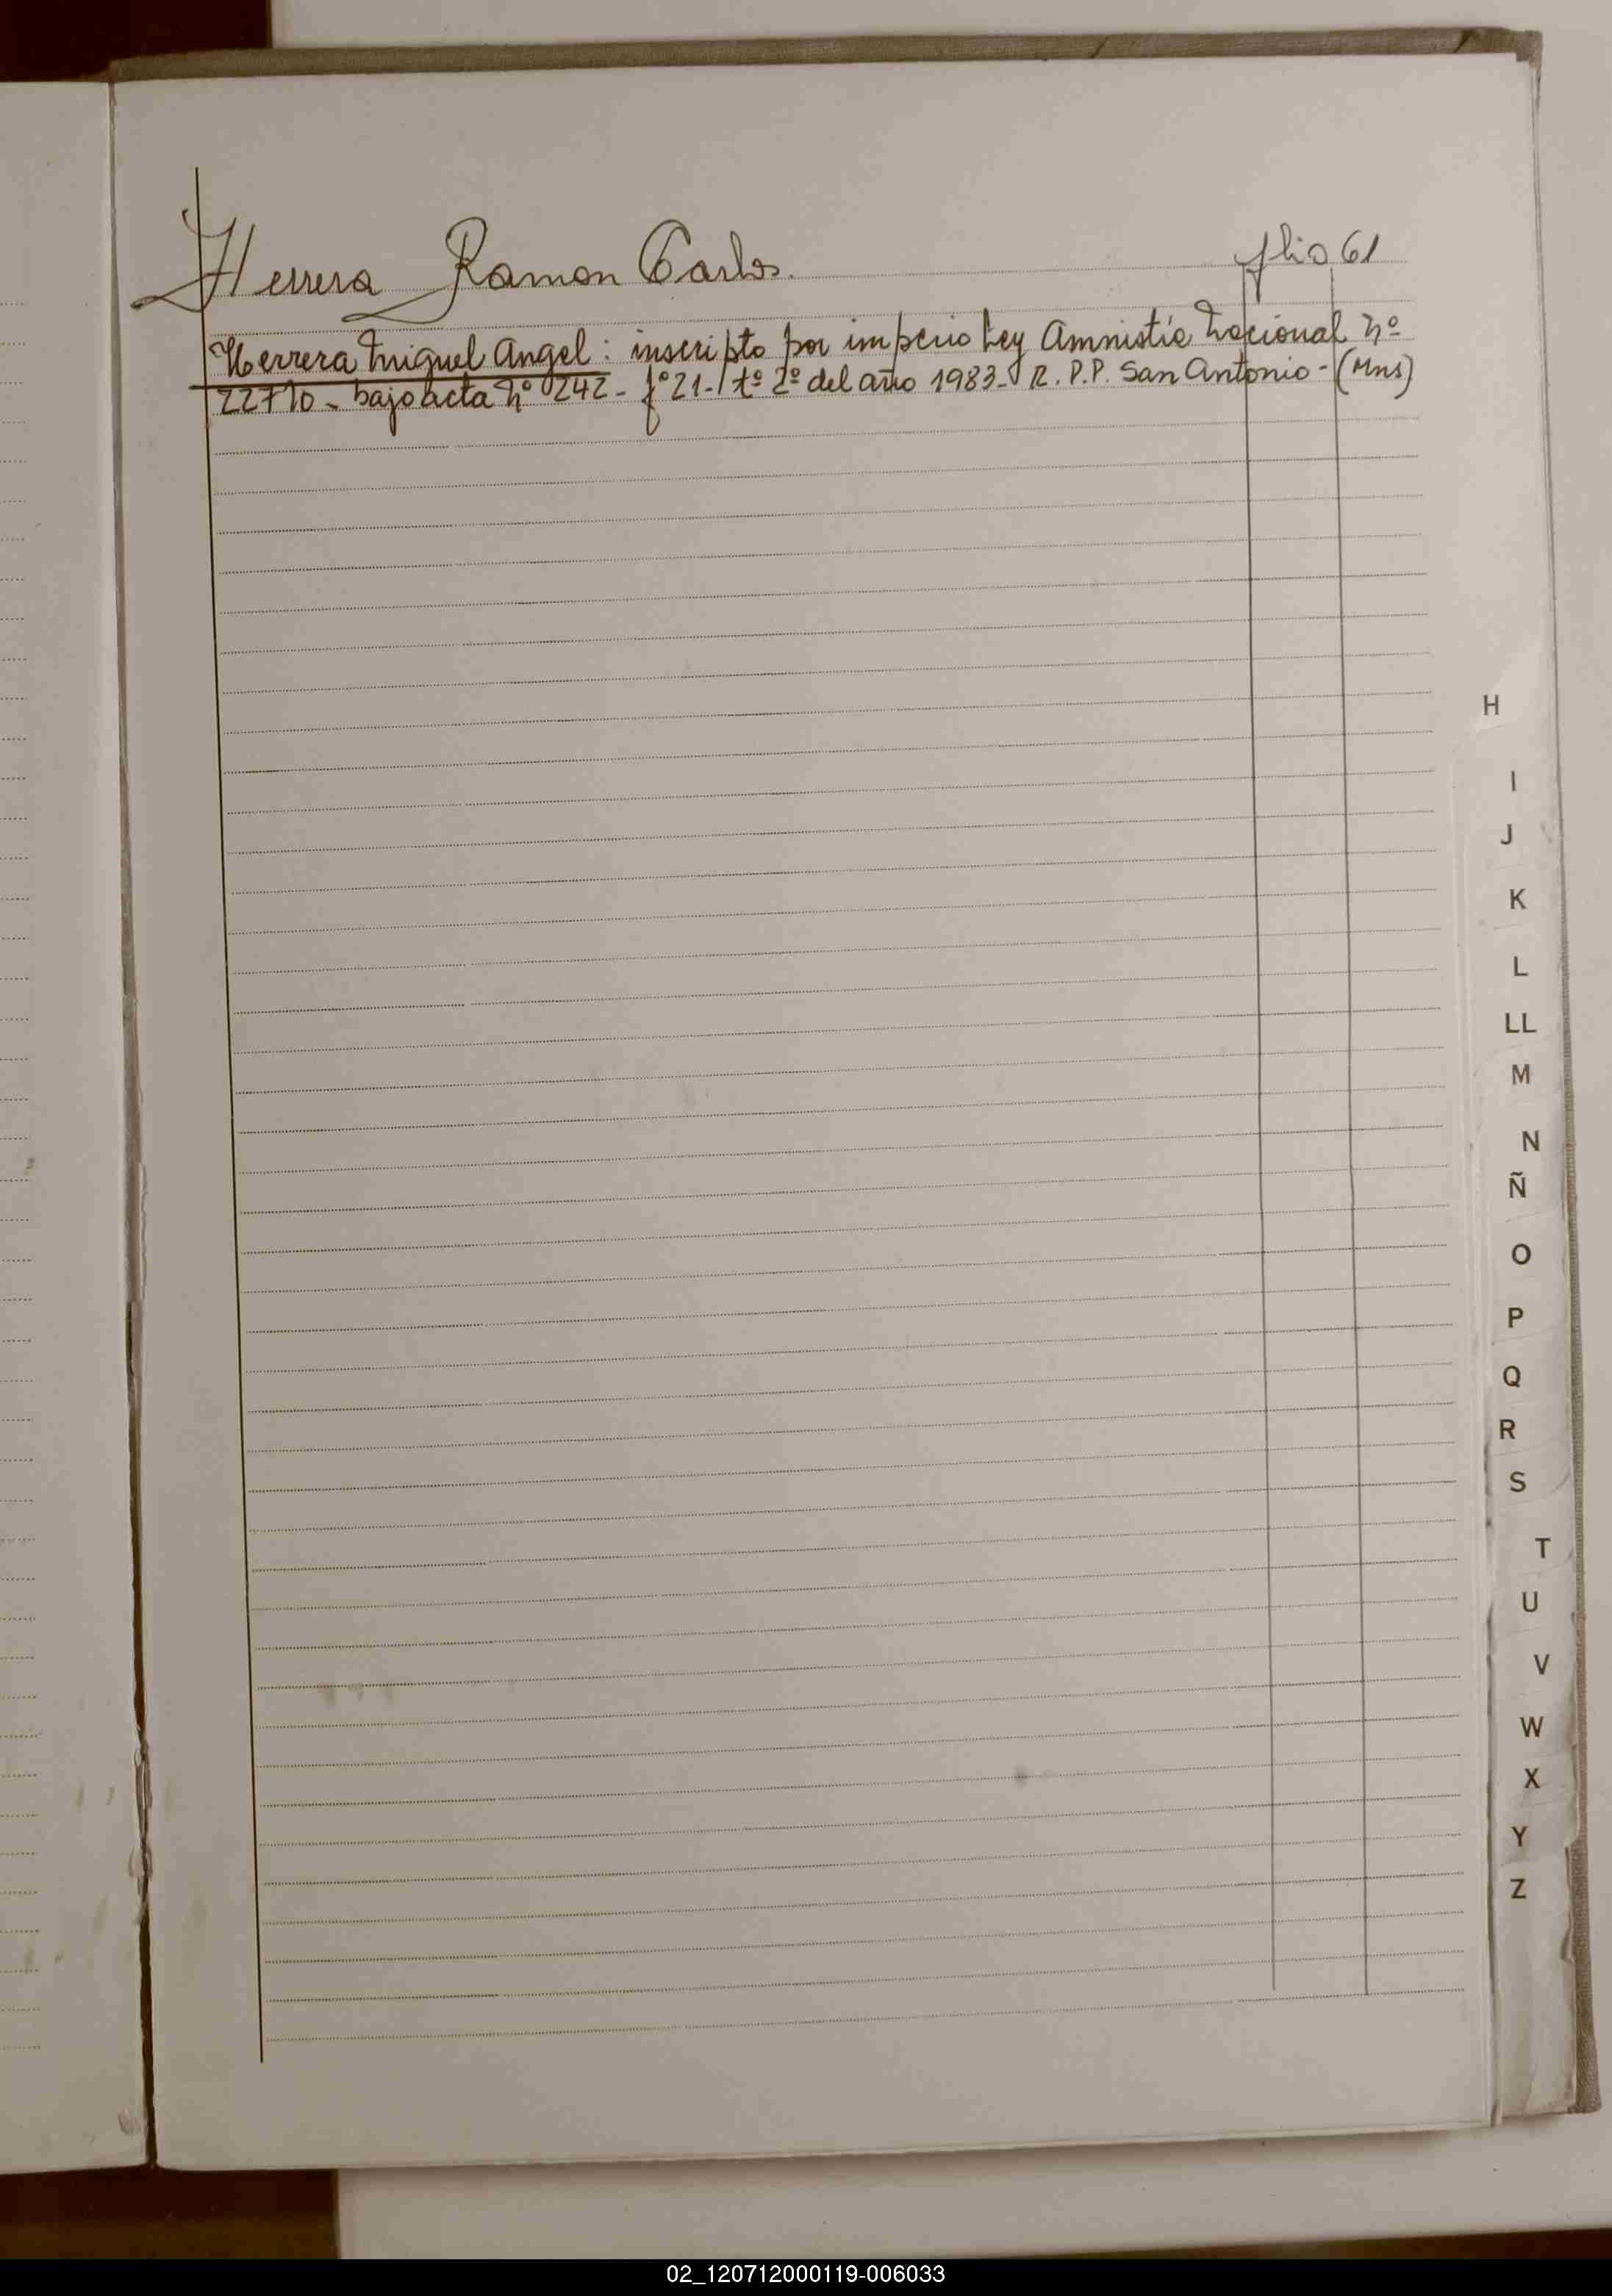 Herrera Ramon Carlos. flio 61
Herrera Miguel Angel: inscripto por imperio Ley Amnistía Nacional Nº
22710 - bajo acta Nº 242 - fº 21 - tº 2º del año 1983 - R. P. P. San Antonio - (Mns)
H
I
J
K
L
LL
M
N
Ñ
O
P
Q
R
S
T
U
V
W
X
Y
Z
02_120712000119-006033